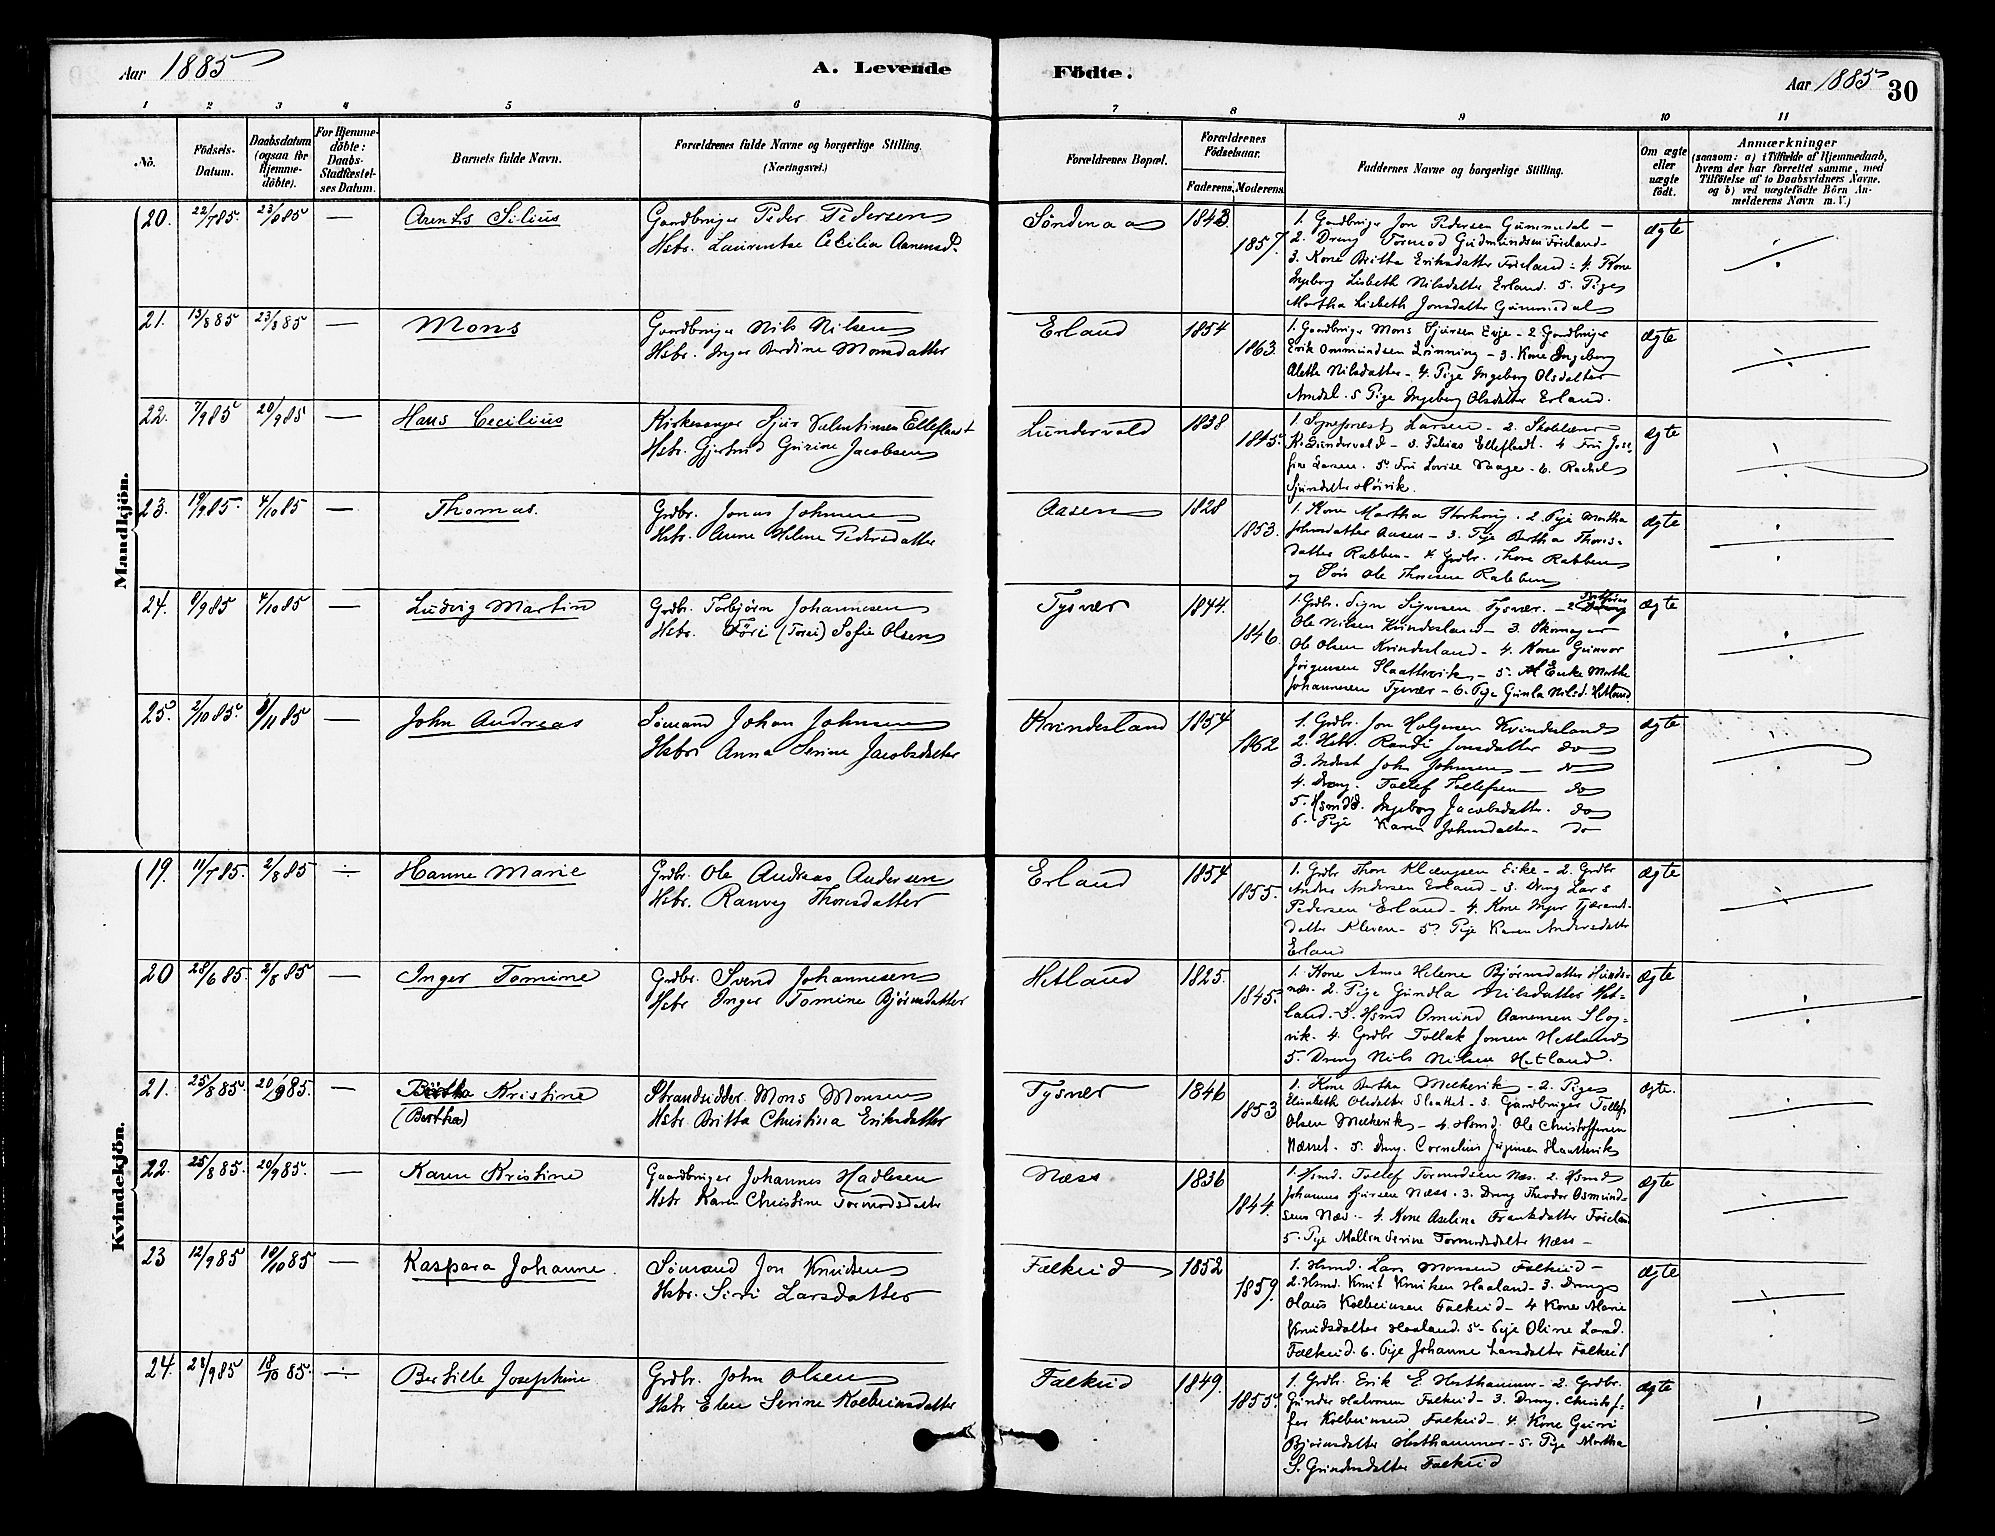 Aar 1885
A. Levende Födte.
Aar 1885
30
1 2 3 4 5 6 7 8 9 10 11
No.
Födsels-Datum.
Daabsdatum (ogsaa for Hjemme-döbte).
For Hjemme-döbte: Daabs-Stadfæstel-ses Datum.
Barnets fulde Navn.
Forældrenes fulde Navne og borgerlige Stilling. (Næringsvei.)
Forældrenes Bopæl.
Forældrenes Födselsaar.
Faderens. Moderens.
Faddernes Navne og borgerlige Stilling.
Om ægte eller uægte födt.
Anmærkninger
(saasom: a) i Tilfælde af Hjemmedaab, hvem der har forrettet samme, med Tilföielse af to Daabsvidners Navne. og b) ved uægtefödte Börn An-melderens Navn m. V.)
Mandkjön.
20. 22/7 85 23/8 85 — Arents Silius
Gaardbruger Peder Pedersen
Hstr. Laurentse Cecilia Aanensd.
Söndenaa 1843 1857.
1. Gaardbruger Jon Pedersen Gummedal —
2. Dreng Tormod Gudmundsen Föreland —
3. Kone Britta Eriksdatter Föreland — 4. Kone
Ingeborg Lisbeth Nilsdatter Erland. 5. Pige
Martha Lisbeth Jonsdatter Gummedal
ægte
21. 13/8 85 23/8 85 — Mons
Gaardbruger Nils Nilsen
Hstr. Inger Berdine Monsdatter
Erland 1854 1863.
1. Gaardbruger Mons Sjursen Evje — 2 Gaardbruger
Erik Ommundsen Rönning — 3. Kone Ingeborg
Alette Nilsdatter — 4. Pige Ingeborg Olsdatter
Amdal. 5 Pige Ingeborg Olsdatter Erland.
ægte
22. 7/9 85 20/9 85 — Hans Cecilius
Kirkesanger Sjur Valentinsen Elleflaat
Hstr. Gjertrud Gurine Jacobsen
Lundervold 1838 1845.
1. Sognepræst Larsen — 2. Skolelærer
K. Lundervold — 3. Tobias Elleflaat. 4 Fru Jose-
fine Larsen. 5. Fru Lovise Vaage — 6. Rachel
Sjursdatter Hövik.
ægte
23. 19/9 85. 4/10 85 — Thomas.
Grdbr. Jonas Johnsen
Hstr. Anne Helene Pedersdatter
Aasen 1828 1853.
1. Kone Martha Storhoug. 2. Pige Martha
Johnsdatter Aasen — 3. Pige Bertha Thores-
datter Rabben — 4. Grdbr. Thore Rabben
og Sön Ole Thoresen Rabben
ægte
24. 9/9 85 4/10 85 — Ludvig Martin
Grdbr. Torbjörn Johannesen
Hstr. Töri (Torri) Sofie Olsen
Tysvær 1844. 1846.
1. Grdbr. Sign Signesen Tysvær. — 2
Ole Nilsen Kvindesland — 3. Skomager
Ole Olsen Kvindesland — 4. Kone Gunvor
Jörgensen Slaattevik — 5. Enke Marthe
Johannesen Tysvær — 6. Pige Gunla Nilsd. Hetland
ægte
25. 2/10 85. 1/11 85 John Andreas
Sömand Johan Johnsen
Hstr. Anna Serine Jacobsdatter
Kvindesland 1854 1862
1. Grdbr. Jon Helgesen Kvindesland
2. Hstr. Randi Jonsdatter do
3. Inderst John Johnsen — do
4. Dreng. Tollef Tollefsen do
5. Ingeborg Jacobsdatter. do
6. Pige Karen Johnsdatter — do
ægte
Kvindekjön.
19. 11/7 85. 2/8 85 ÷ Hanne Marie
Grdbr. Ole Andreas Andersen
Hstr. Ranveg Thoresdatter
Erland 1854 1855.
1. Grdbr Thor Klængsen Eike — 2. Grdbr
Anders Andersen Erland — 3. Dreng Lars
Pedersen Erland — 4. Kone Inger Tjærand-
datter Kleven — 5. Pige Karen Andersdatter
Erland
ægte
20 28/6 85. 2/8 85 — Inger Tomine
Grdbr. Svend Johannesen
Hstr Inger Tomine Björnsdatter
Hetland 1825. 1845.
1. Kone Anne Helene Björnsdatter Hunds-
næs. 2. Pige Gundla Nilsdatter Het-
land. 3. Hsmd Omund Aanensen Slog-
vik. 4. Grdbr Tollak Jonsen Hetland
5. Dreng Nils Nilsen Hetland.
ægte
21. 25/8 85. 20/9 85. — Kristine
(Bertha)
Strandsidder. Mons Monsen
Hstr. Britta Christina Eriksdatter
Tysvær 1846 1853
1. Kone Bertha Melkevik — 2. Pige
Elisabeth Olsdatter Slaattet — 3. Gaardbruger Tollef
Olsen Melkevik — 4. Hsmd. Ole Christoffersen
Næsset. 5. Dreng. Cornelius Jörgensen Slaattevik
ægte.
22. 25/8 85. 20/9 85. — Karen Kristine
Gaardbruger Johannes Hadlesen
Hstr Karen Christine Tormodsdatter
Næss 1836 1844.
1. Hsmd. Tollef Tormodsen Næs. 2. Hsmd
Johannes Sjursen Næss. 3. Dreng Theodor Osmund-
sen Næs. — 4. Kone Aselina Franksdatter Föreland
5. Pige Mallen Serine Tormodsdatter Næss —
ægte
23 12/9 85 18/10 85 — Kaspara Johanne.
Sömand Jon Knudsen
Hstr. Siri Larsdatter
Falkeid 1852 1859.
1. Hsmd. Lars Monsen Falkeid —
2. Hsmd. Knut Knutsen Haaland — 3. Dreng
Olaus Kolbeinsen Falkeid — 4 Kone Marie
Knudsdatter Haaland. 5 — Pige Oline Larsd.
Falkeid. 6. Pige Johanne Larsdatter Falkeid
ægte
24. 28/9 85 18/10 85. ÷ Josephine
Grdbr. John Olsen
Hstr Elen Serine Kolbeinsdatter
Falkeid 1849. 1855.
1. Grdbr. Erik E. Hesthammer — 2. Grdbr.
Gunder Halvorsen Falkeid — 3. Dreng. Christof-
fer Kolbeinsen Falkeid — 4. Kone Guri
Björnsdatter Hesthammer — 5. Pige Martha
S. Gundersdatter Falkeid
ægte